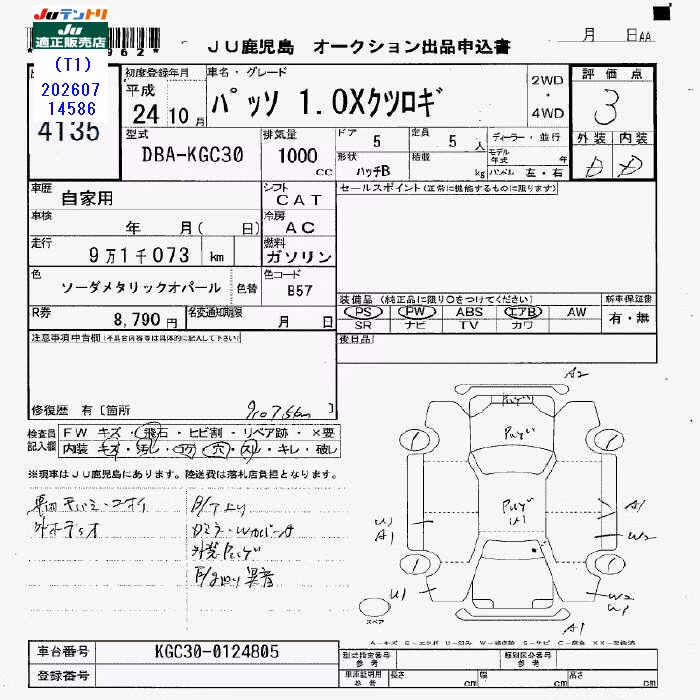 JUテントリ
JU
適正販売店
(T1)
202607
14586
4135
JU鹿児島 オークション出品申込書
月 日AA
初度登録年月 車名・グレード
平成
24 10月
パッソ 1.0Xクツロギ
2WD
・
4WD
評価点
3
外装 内装
D D
型式
DBA-KGC30
排気量
1000
cc
ドア 5
定員 5 人
ディーラー・並行
モデル年式 年
形状 ハッチB
積載 kg
ハンドル 左・右
車歴
自家用
シフト
CAT
セールスポイント(正常に機能するものに限ります)
車検
年 月( 日)
冷房
AC
走行
9万1千073 km
燃料
ガソリン
色
ソーダメタリックオパール
色替
色コード
B57
R券
8,790円
名変通知期限
月 日
装備品(純正品に限り○をつけてください)
新車保証書
PS PW ABS エアB AW
SR ナビ TV カワ
有・無
注意事項申告欄(不具合内容等は具体的に記入して下さい)
後日品
修復歴 有〔箇所 〕
検査員
記入欄
FW キズ・飛石・ヒビ割・リペア跡・×要
内装 キズ・汚レ・コゲ・穴・スレ・キレ・破レ
※現車はJU鹿児島にあります。陸送費は落札店負担となります。
A2
A1
W2
U1
A1
U1
W2
A1
スペア
A-キズ E-エクボ U-凹み W-補修跡 S-サビ C-腐食 XX-交換済
車台番号
KGC30-0124805
登録番号
型式指定番号
参考
類別区分番号
参考
車庫証明用
参考
長さ cm
幅 cm
高さ cm